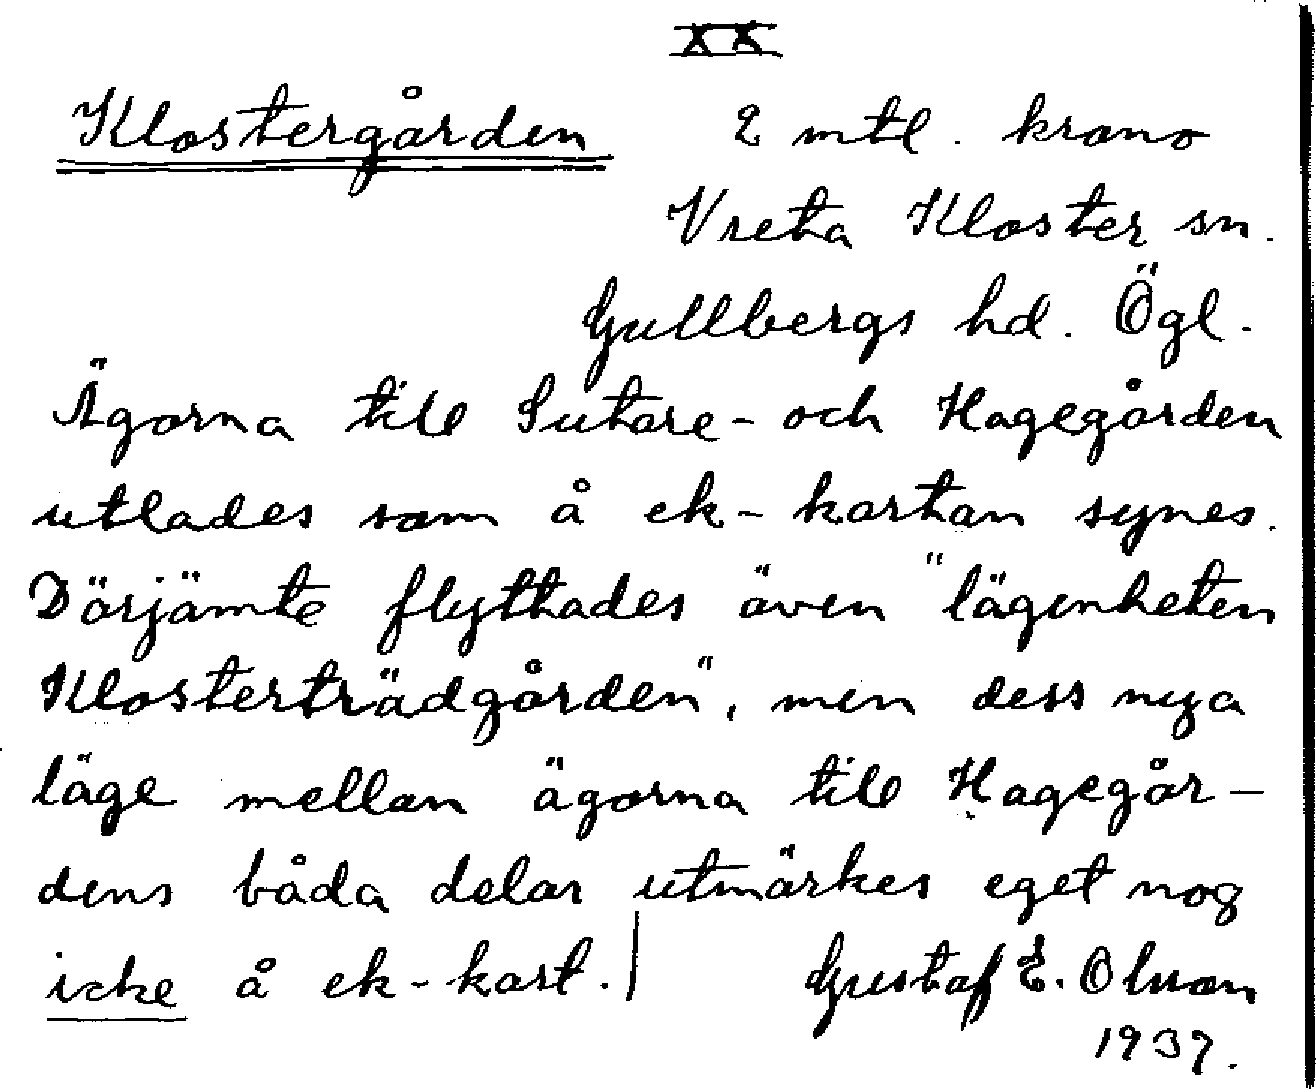 XX
Klostergården 2 mtl. krono
Vreta Kloster sn.
Gullbergs hd. Ögl.
Ägorna till Sutare- och Hagegården
utlades som å ek-kartan synes.
Därjämte flyttades även "lägenheten
Klosterträdgården", men dess nya
läge mellan ägorna till Hagegår-
dens båda delar utmärkes eget nog
icke å ek-kart.
Gustaf E. Olsson
1937.